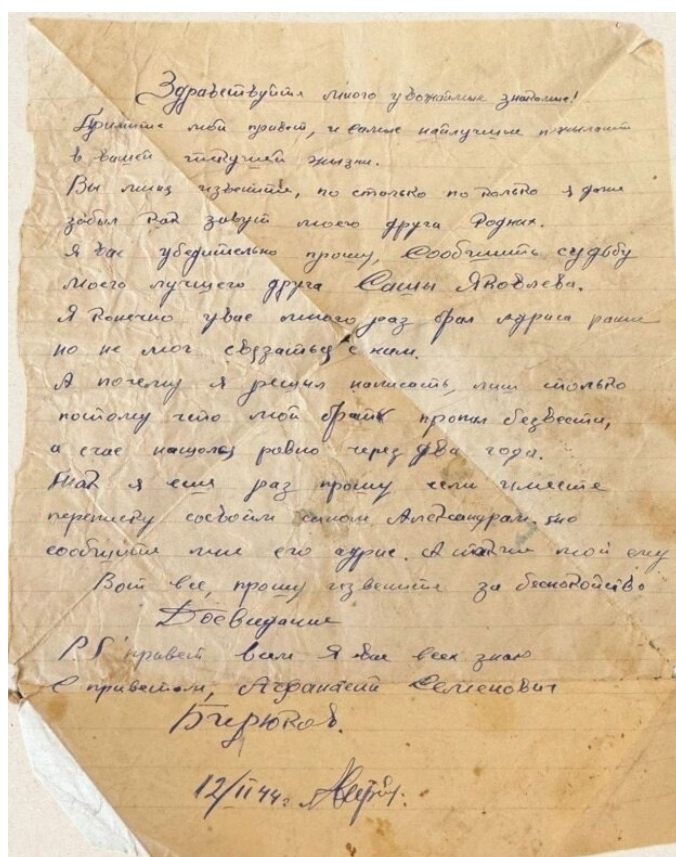 Здравствуйте много уважаймые знакомые!
Примите мой привет, и самые наилучшие пожылания
в вашей текущей жызни.
Вы меня извените, по столько по колько я даже
забыл как завут моего друга Родных.
Я вас убедительно прошу, Сообчить судьбу
моего лучщего друга Сашы Яковлева.
Я конечно увас много раз брал адриса ранше
но не мог свзаться с ним.
А почему я решыл написать, лиш столько
постому что мой брать пропал безвести,
а счас нашолся ровно через два года.
Так я ещя раз прошу если имеете
переписку сосвоим сыном Александрам. то
сообщите мне его адрис. А также мой ему
Вот все, прошу извените за беспокойство
Досвидание
PS привет всем я вас всех знаю
С приветом, Афанасий Семенович
Бирюков.
12/II 44г.